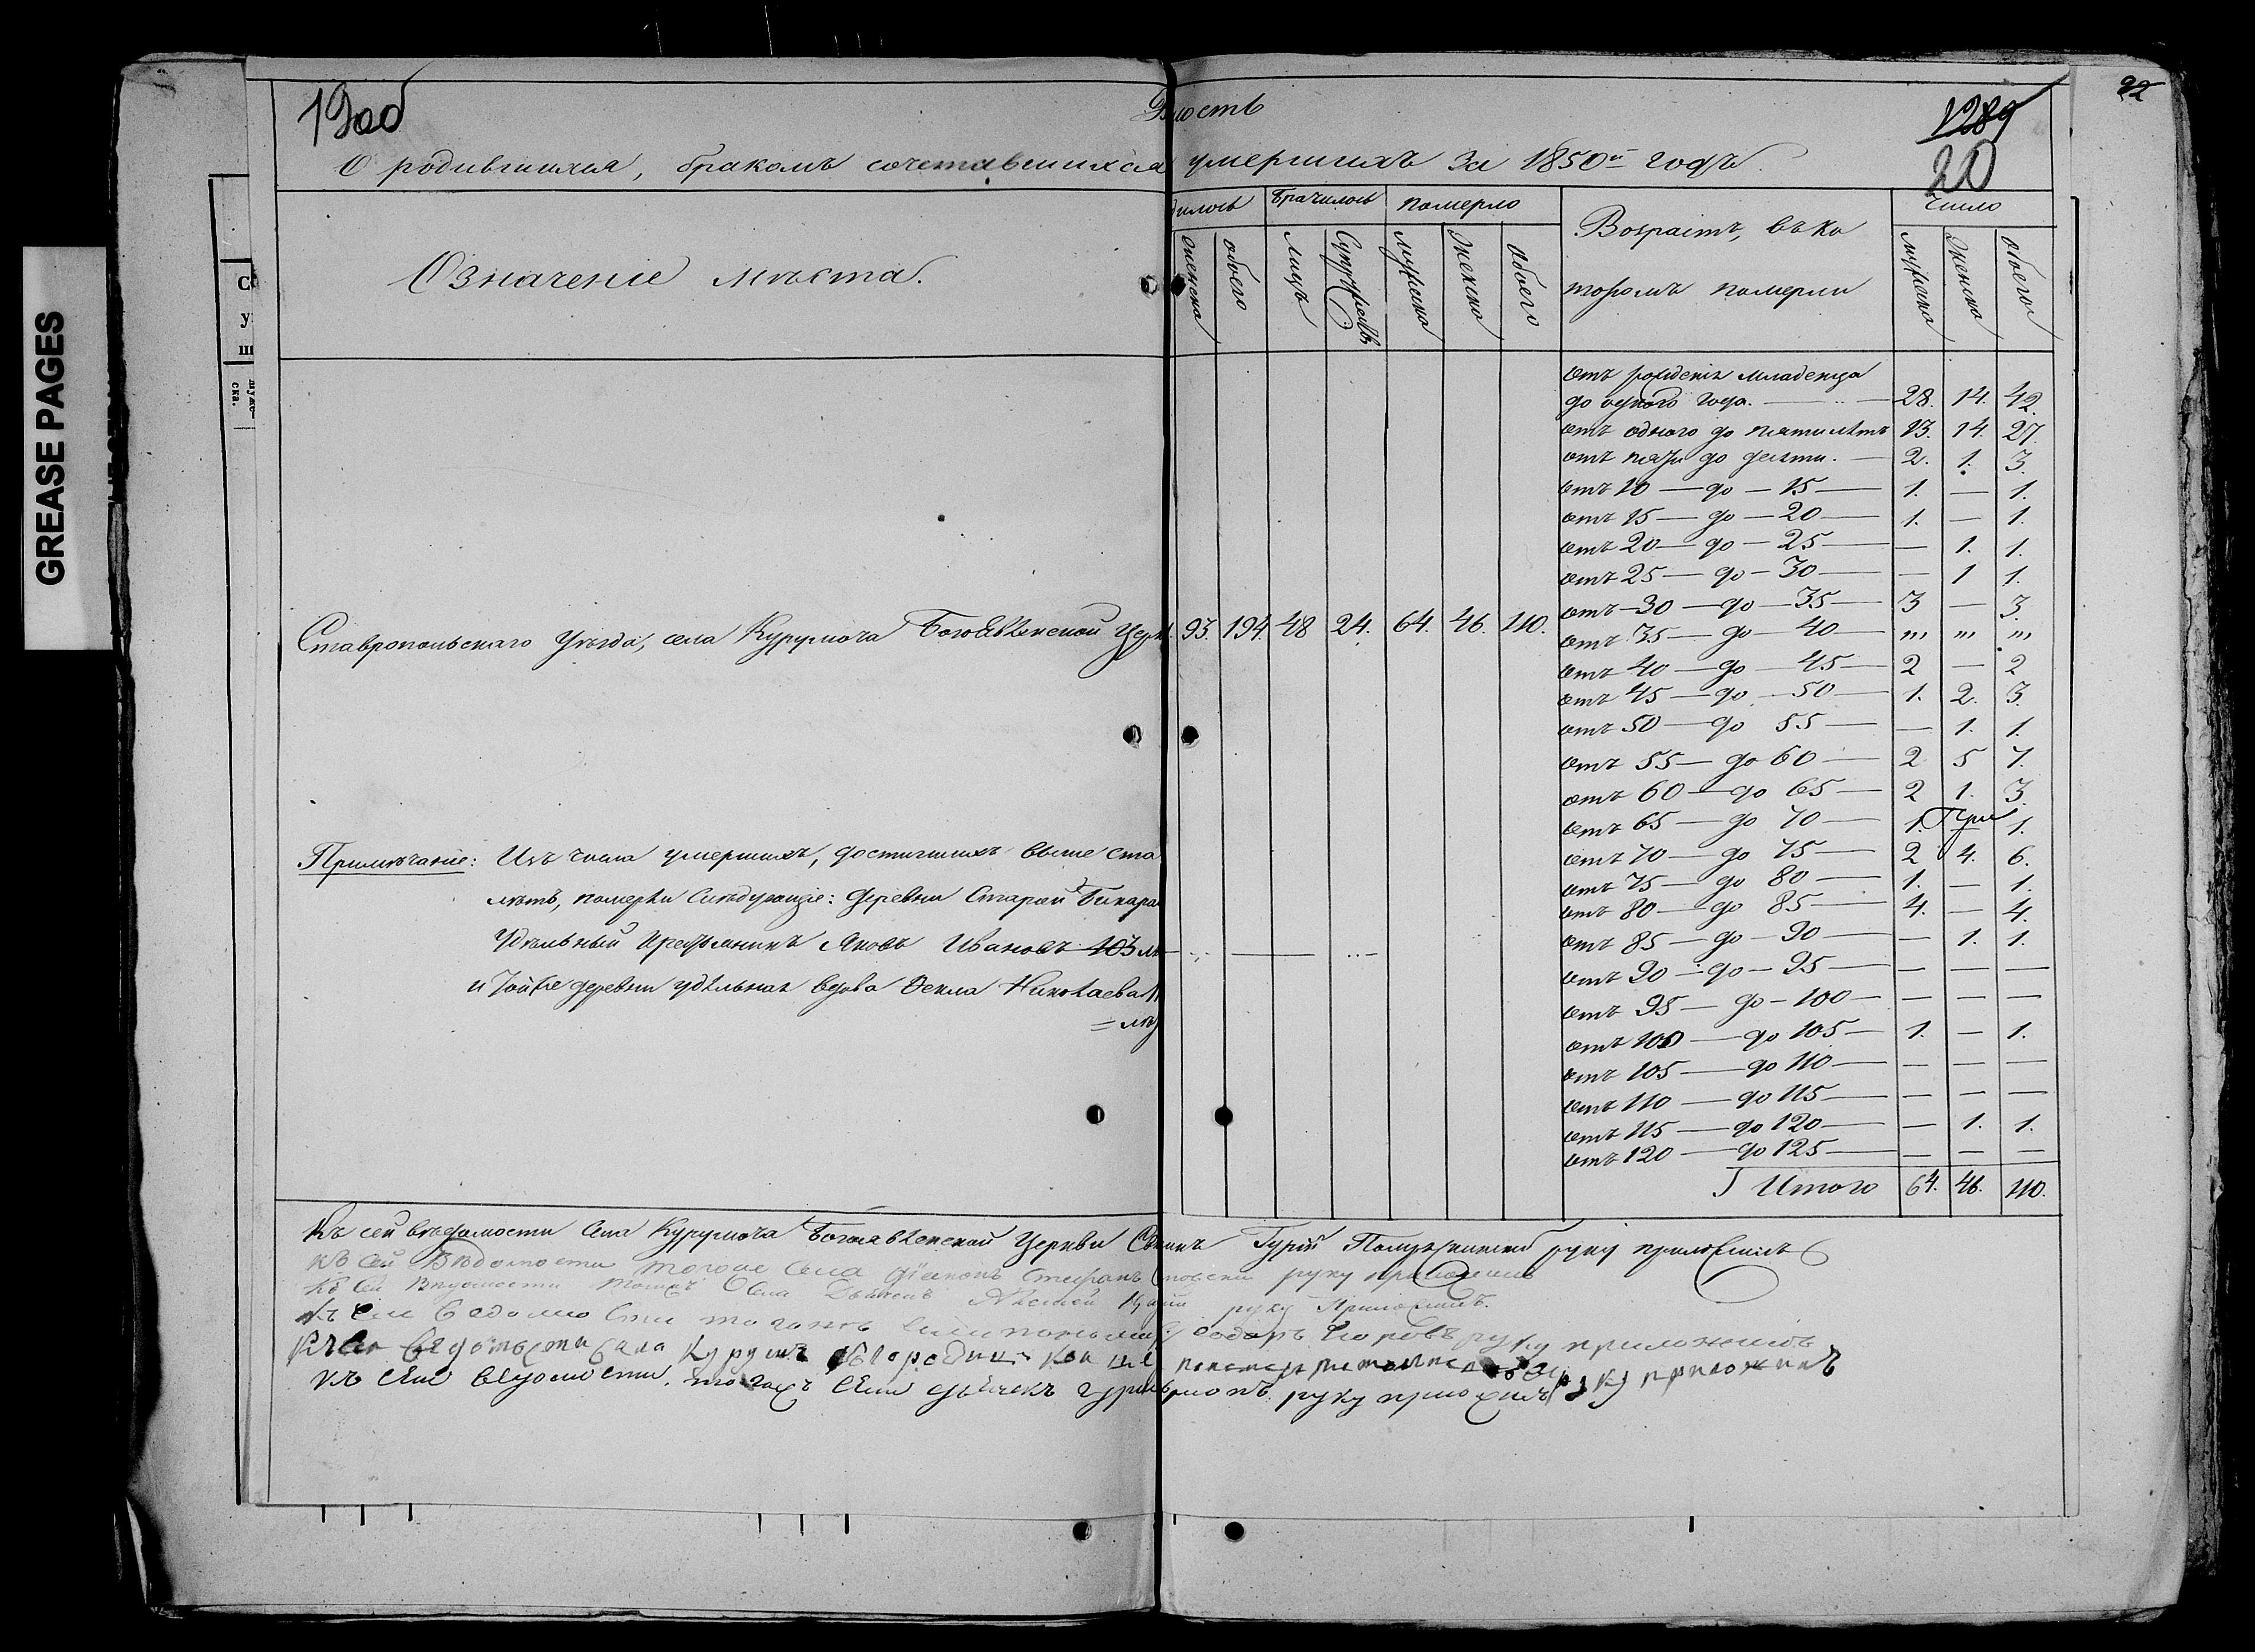 19об
Вѣдомость
1289
20
22
О родившихся, бракомъ сочетавшихся умершихъ за 1850й годъ.
GREASE PAGES
Означеніе мѣста.
дилось Брачилось Померло
женска обоего лицъ супружествъ мужска женска обоего
Возрастъ, въ ко
торомъ померли
Число
мужска женска обоего
отъ рожденія младенца
до одного года. 28. 14. 42.
отъ одного до пяти лѣтъ 13. 14. 27.
отъ пяти до десяти. — 2. 1. 3.
отъ 10 — до — 15 — 1. — 1.
отъ 15 — до — 20 — 1. — 1.
отъ 20 — до — 25 — — 1. 1.
отъ 25 — до — 30 — — 1 1.
отъ 30 — до — 35 — 3 — 3.
Ставропольскаго Уѣзда, села Курумоча Богоявленской Церк. 93. 194. 48 24. 64. 46. 110.
отъ 35 — до — 40 — „, „, „,
отъ 40 — до — 45 — 2 — 2
отъ 45 — до — 50 — 1. 2. 3.
отъ 50 — до 55 — — 1. 1.
отъ 55 — до 60 — 2 5 7.
отъ 60 — до 65 — 2 1. 3.
отъ 65 — до 70 — 1. — 1.
Гурій
отъ 70 — до 75 — 2 4. 6.
отъ 75 — до 80 — 1. — 1.
отъ 80 — до 85 — 4. — 4.
отъ 85 — до — 90 — — 1. 1.
отъ 90 — до — 95 — — — —
отъ 95 — до — 100 — — — —
отъ 100 — до 105 — 1. — 1.
отъ 105 — до 110 — — — —
отъ 110 — до 115 — — — —
отъ 115 — до 120 — — 1. 1.
отъ 120 — до 125 — — — —
Итого 64. 46. 110.
Примѣчаніе: Изъ числа умершихъ, достигшихъ выше ста
лѣтъ, померли слѣдующіе: деревни Старой Бинара
Удѣльный крестьянинъ Яковъ Ивановъ 103 лѣ
и той же деревни удѣльная вдова Фекла Николаева
= лѣ
Къ сей вѣдомости села Курумоча Богоявленской Церкви Свящ Гурій руку приложилъ
Къ сей Вѣдомости тогоже села діаконъ Стефанъ руку приложилъ
Къ сей Вѣдомости тогожъ села Дьячекъ Алексей руку Приложилъ.
Къ сей ведомости тогожъ села пономарь Федоръ руку приложилъ
Къ сей ведомости села Курумоча пономарь руку приложилъ
Къ сей ведомости тогожъ села дьячекъ руку приложилъ